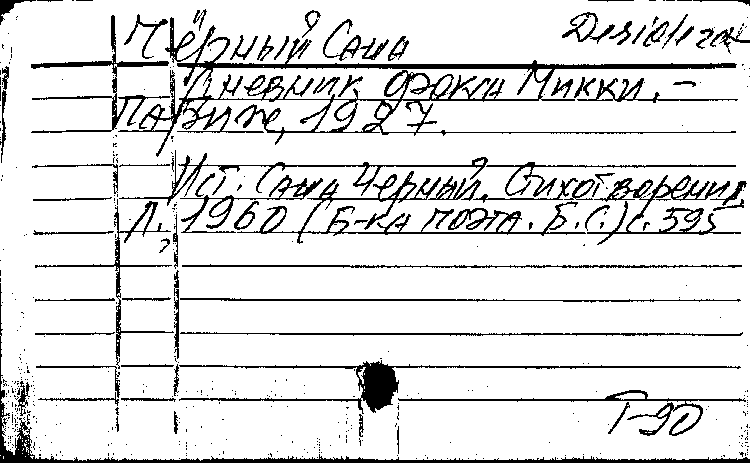 Чёрный Саша Desiderata
Дневник фокса Микки. –
Париж, 1927.
Ист. Саша Черный. Стихотворения.
Л., 1960 (Б-ка поэта. Б.С.) с. 595
Т-90